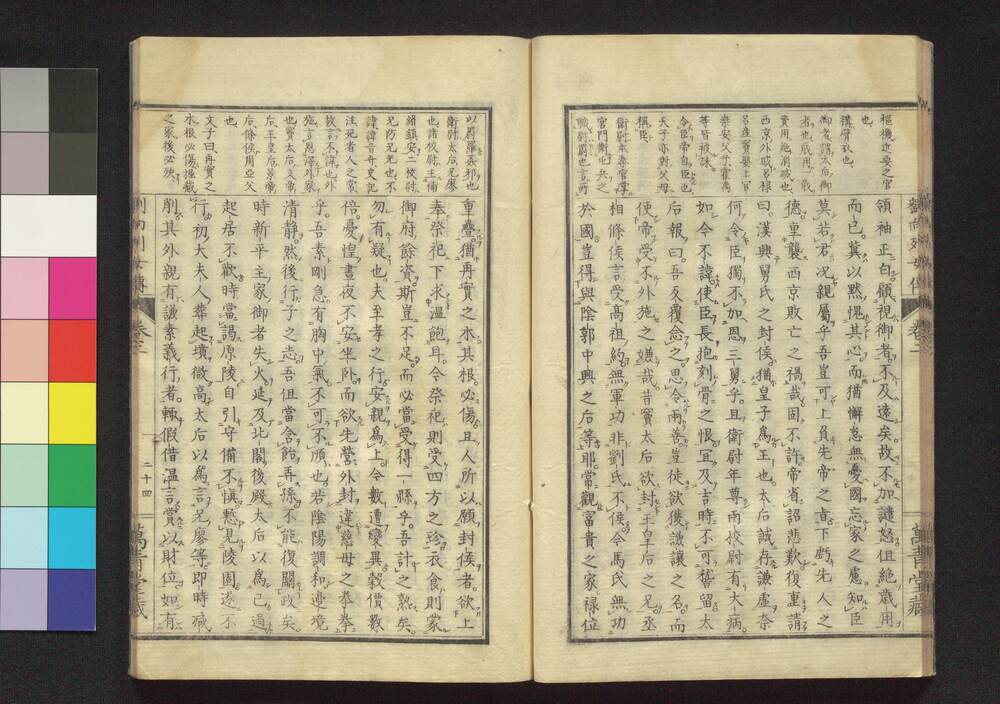 樞機近要之官
也
構臂衣也
御者謂太后御
者也歲用一歲
費用絶消滅也
西京外戚呂祿
呂產竇嬰上官
桀安父子霍禹
等皆被誅
令臣帝自臣也
天子亦對父母
稱臣
領袖正白顧視御者不及遠矣故不加譴怒但絶歲用
而已冀以默愧其心而猶懈怠無憂國忘家之慮知臣
莫若君況親屬乎吾豈可上負先帝之旨下虧先人之
德重襲西京敗亡之禍哉固不許帝省詔悲歎復重請
曰漢興舅氏之封侯猶皇子爲王也太后誠存謙虛奈
何令臣獨不加恩三舅乎且衛尉年尊兩校尉有大病
如令不諱使臣長抱刻骨之恨宜及吉時不可稽留太
后報曰吾反覆念之思令兩善豈徒欲獲謙讓之名而
使帝受不外施之嫌哉昔竇太后欲封王皇后之兄丞
相條侯言受高祖約無軍功非劉氏不侯令馬氏無功
於國豈得與陰郭中興之后等耶常觀富貴之家祿位
卷二
萬青堂藏
以蔚羅姦邪也
衛尉太后兄廖
也諸校尉主捕
也
文子曰再實之
木根必傷掘藏
之家後必殃
重疊猶再實之木其根必傷且人所以願封侯者欲上
奉祭祀下求溫飽耳令祭祀則受四方之珍衣食則蒙
御府餘資斯豈不足而必當受得一縣乎吾計之熟矣
勿有疑也夫至孝之行安親爲上令數遭變異穀價數
倍憂惶晝夜不安坐卧而欲先營外封違慈母之拳拳
乎吾素剛急有胸中氣不可不順也若陰陽調和邊境
清静然後行子之志吾但當含飴弄孫不能復關政矣
時新平主家御者失火延及北閣後殿太后以爲己過
起居不歡時當謁原陵自引守備不愼慙見陵園遂不
行初大夫人葬起墳微高太后以爲言兄廖等即時減
削其外親有謙素義行者輒假借溫言賞以財位如有
卷二
二十四
萬青堂藏